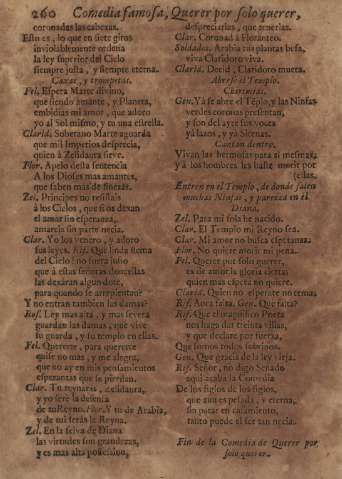 260 Comedia famosa, Querer por solo querer,
coronadas las cabezas.
Esto es, lo que en siete giros
inviolablemente ordena
la ley superior del Cielo
siempre justa, y siempre eterna.
Caxas, y trompetas.
Fel. Espera Marte divino,
que siendo amante, y Planeta,
embidias mi amor, que adoro
yo al Sol mismo, y tu una estrella.
Clarid. Soberano Marte aguarda
que mil Imperios desprecia,
quien à Zelidaura lleve.
Flor. Apelo desta sentencia
A los Dioses mas amantes,
que saben mas de finezas.
Zel. Principes no resistais
à los Cielos, que si os dexan
el amar sin esperanza,
amareis sin parte necia.
Clar. Yo los venero, y adoro
sus leyes. Rif. Que linda flema
del Cielo! no fuera justo
que à estas señoras doncellas
las dexàran algun dote,
para quando se arrepientan?
Y no entran tambien las damas?
Rof. Ley mas alta, y mas severa
guardan las damas, que vive
tu guarda, y su templo en ellas.
Fel. Quererte, para quererte
quise no mas, y me alegra,
que no ay en mis pensamientos
esperanzas que se pierdan.
Clar. Tu reynarás, Zelidaura,
y yo serè la defensa
de tu Reyno. Flor. Y tu de Arabia,
y de mi seràs la Reyna.
Zel. En la selva de Diana
las virtudes son grandezas,
y es mas alta possession,
despreciarlas, que tenerlas.
Clar. Coronad à Floranteo.
Soldados. Arabia tus plantas besa,
viva Claridoro viva.
Clarid. Decid, Claridoro muera.
Abrese el Templo.
Chirimias.
Gen. Yà se abre el Tẽplo, y las Ninfas
verdes coronas presentan,
y son de laver sus voces
yà lazos, y yà Sirenas.
Cantan dentro.
Vivan las hermosas para si mesmas,
y à los hombres les baste morir por
ellas.
Entren en el Templo, de donde salen
muchas Ninfas, y parezca en el
Diana.
Zel. Para mi sola he nacido.
Clar. El Templo mi Reyno sea.
Clar. Mi amor no busca esperanza.
Flor. No quiere morir mi pena.
Fel. Querer por solo querer,
es de amor la gloria cierta;
quien mas espera no quiere.
Clarid. Quien no espera no tema.
Rif. Aora falta. Gen. Que falta?
Rif. Que el magnifico Poeta
nos haga dar treinta villas,
y que declare por fuerza,
Que somos todos sobrinos.
Gen. Que gracia de la ley vieja.
Rif. Señor, no digo Senado
aqui acaba la Comedia
De los siglos de los siglos,
que aun es pesada, y eterna,
sin parar en casamiento,
tanto puede el ser tan necia.
Fin de la Comedia de Querer por
solo querer.